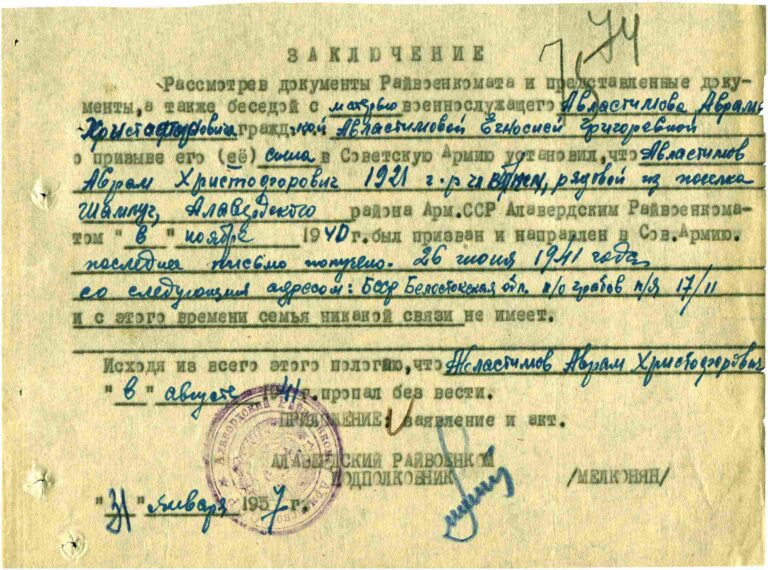 74
ЗАКЛЮЧЕНИЕ
Рассмотрев документы Райвоенкомата и представленные доку-
менты, а также беседой с матерью военнослужащего Авластимова Аврам
Христофоровича гражд.кой Авластимовой Григоревной
о призыве его (её) сына в Советскую Армию установил, что Авластимов
Аврам Христофорович 1921 г-р рядовой из поселка
Шамлуг, Алавердского района Арм.ССР Алавердским Райвоенкома-
том "в" ноября 1940 г. был призван и направлен в Сов.Армию.
последнее письмо получено. 26 июня 1941 года
со следующим адресом: БССР Белостокская обл. п/о Граево п/я 17/II
и с этого времени семья никакой связи не имеет.
Исходя из всего этого пологаю, что Авластимов Аврам Христофорович
"в" августе 1941 г. пропал без вести.
ПРИЛОЖЕНИЕ: заявление и акт.
АЛАВЕРДСКИЙ РАЙВОЕНКОМ
ПОДПОЛКОВНИК /МЕЛКОНЯН/
"31" января 1957 г.